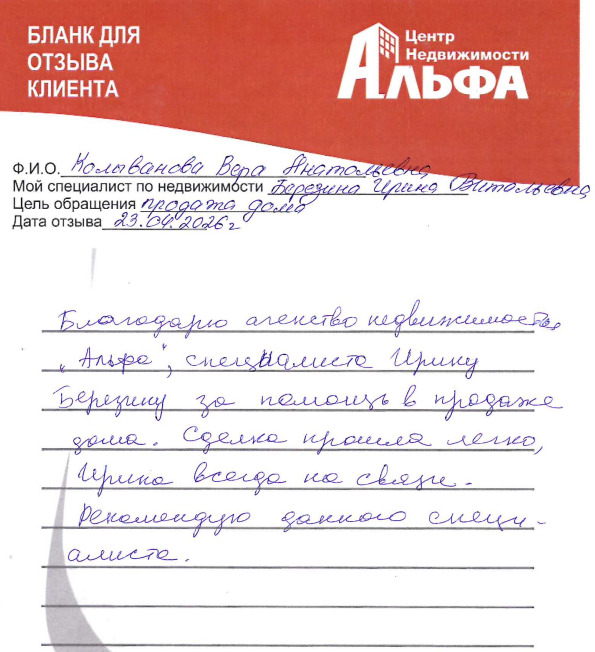 БЛАНК ДЛЯ
ОТЗЫВА
КЛИЕНТА
Центр
Недвижимости
АЛЬФА
Ф.И.О. Колыванова Вера Анатольевна
Мой специалист по недвижимости Березина Ирина Витальевна
Цель обращения продажа дома
Дата отзыва 23.04.2026г
Благодарю агенство недвижимости
"Альфа", специалиста Ирину
Березину за помощь в продаже
дома. Сделка прошла легко,
Ирина всегда на связи.
Рекомендую данного специ-
алиста.